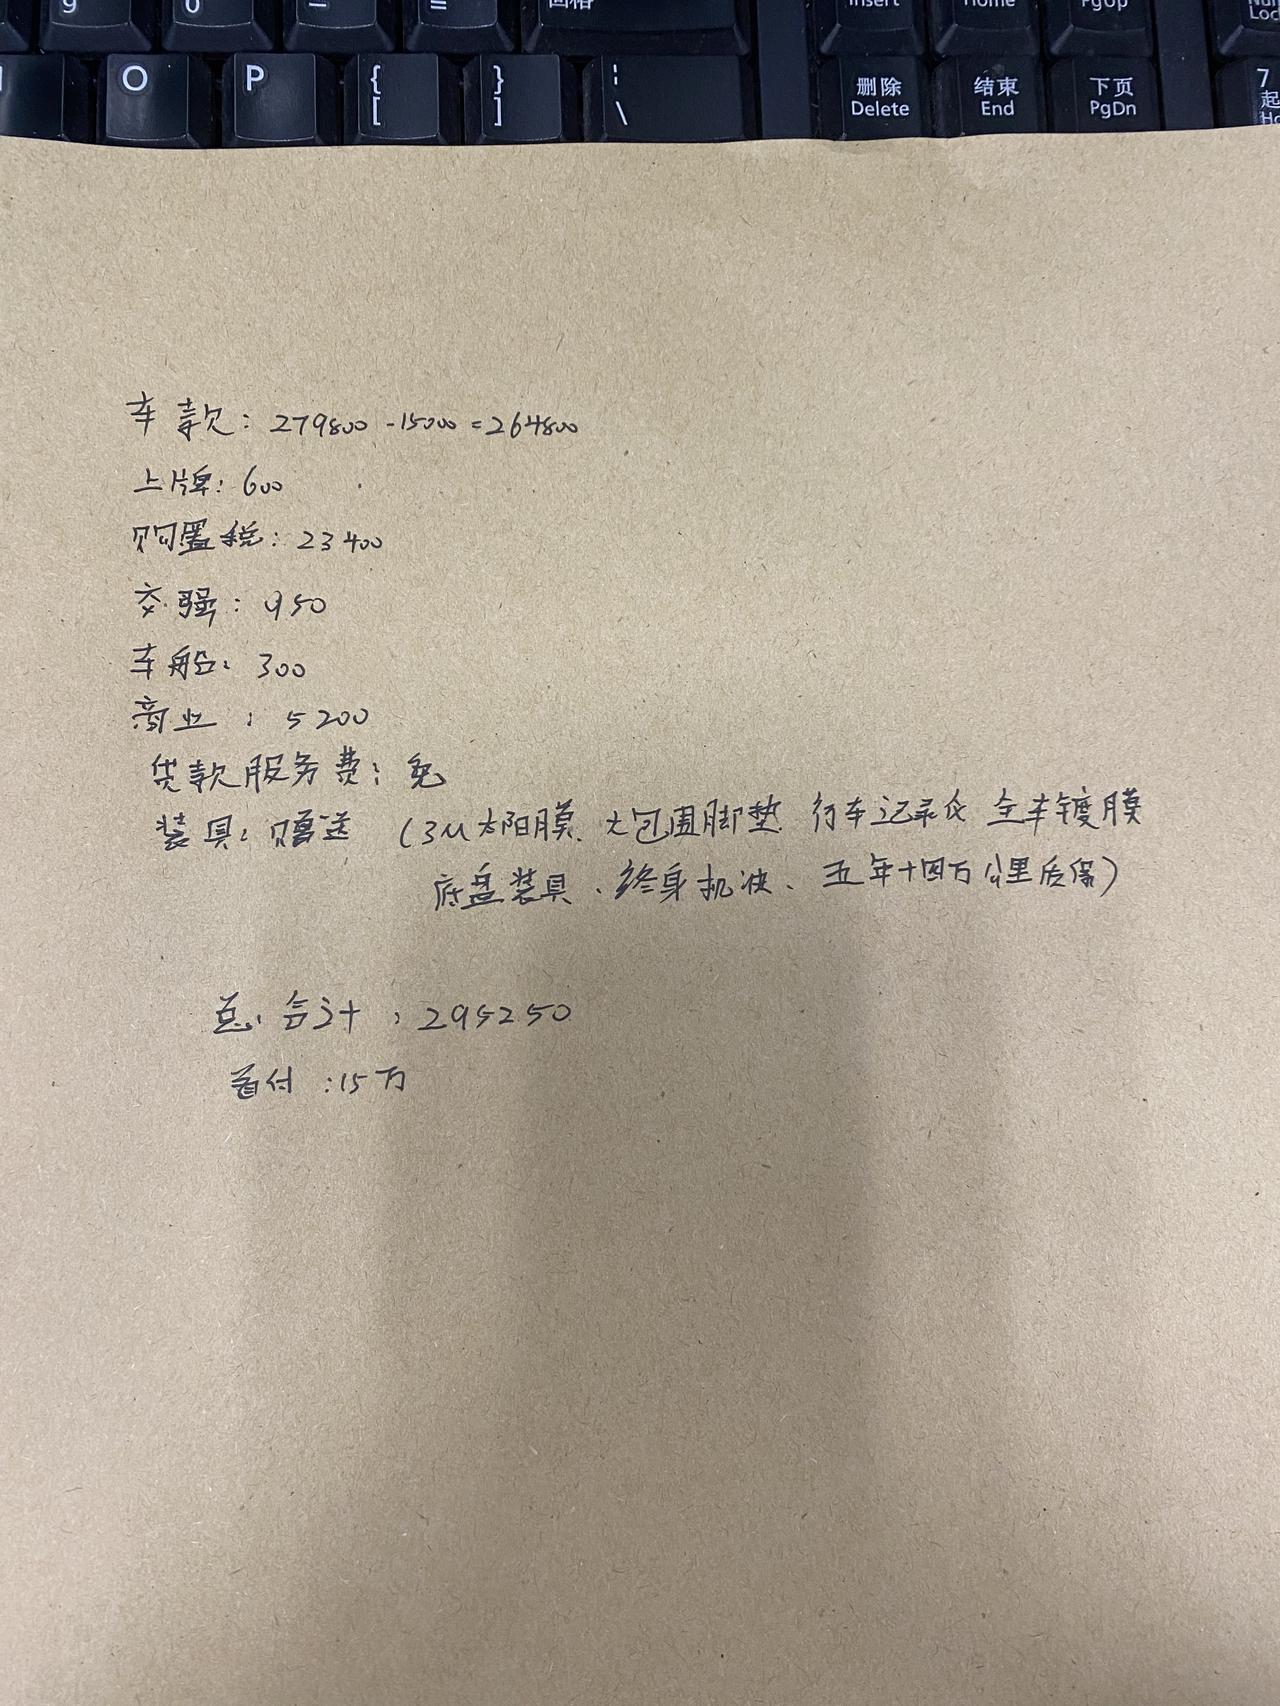 9 0 - =
Insert Home PgUp Num Loc
O P { [ } ] ¦ \ 删除 Delete 结束 End 下页 PgDn 7 起 Ho
车款：279800-15000=264800
上牌：600
购置税：23400
交强：950
车船：300
商业：5200
贷款服务费：免
装具：赠送（3M太阳膜、大包围脚垫、行车记录仪 全车镀膜
底盘装具、终身机油、五年十四万公里质保）
总合计：295250
首付：15万